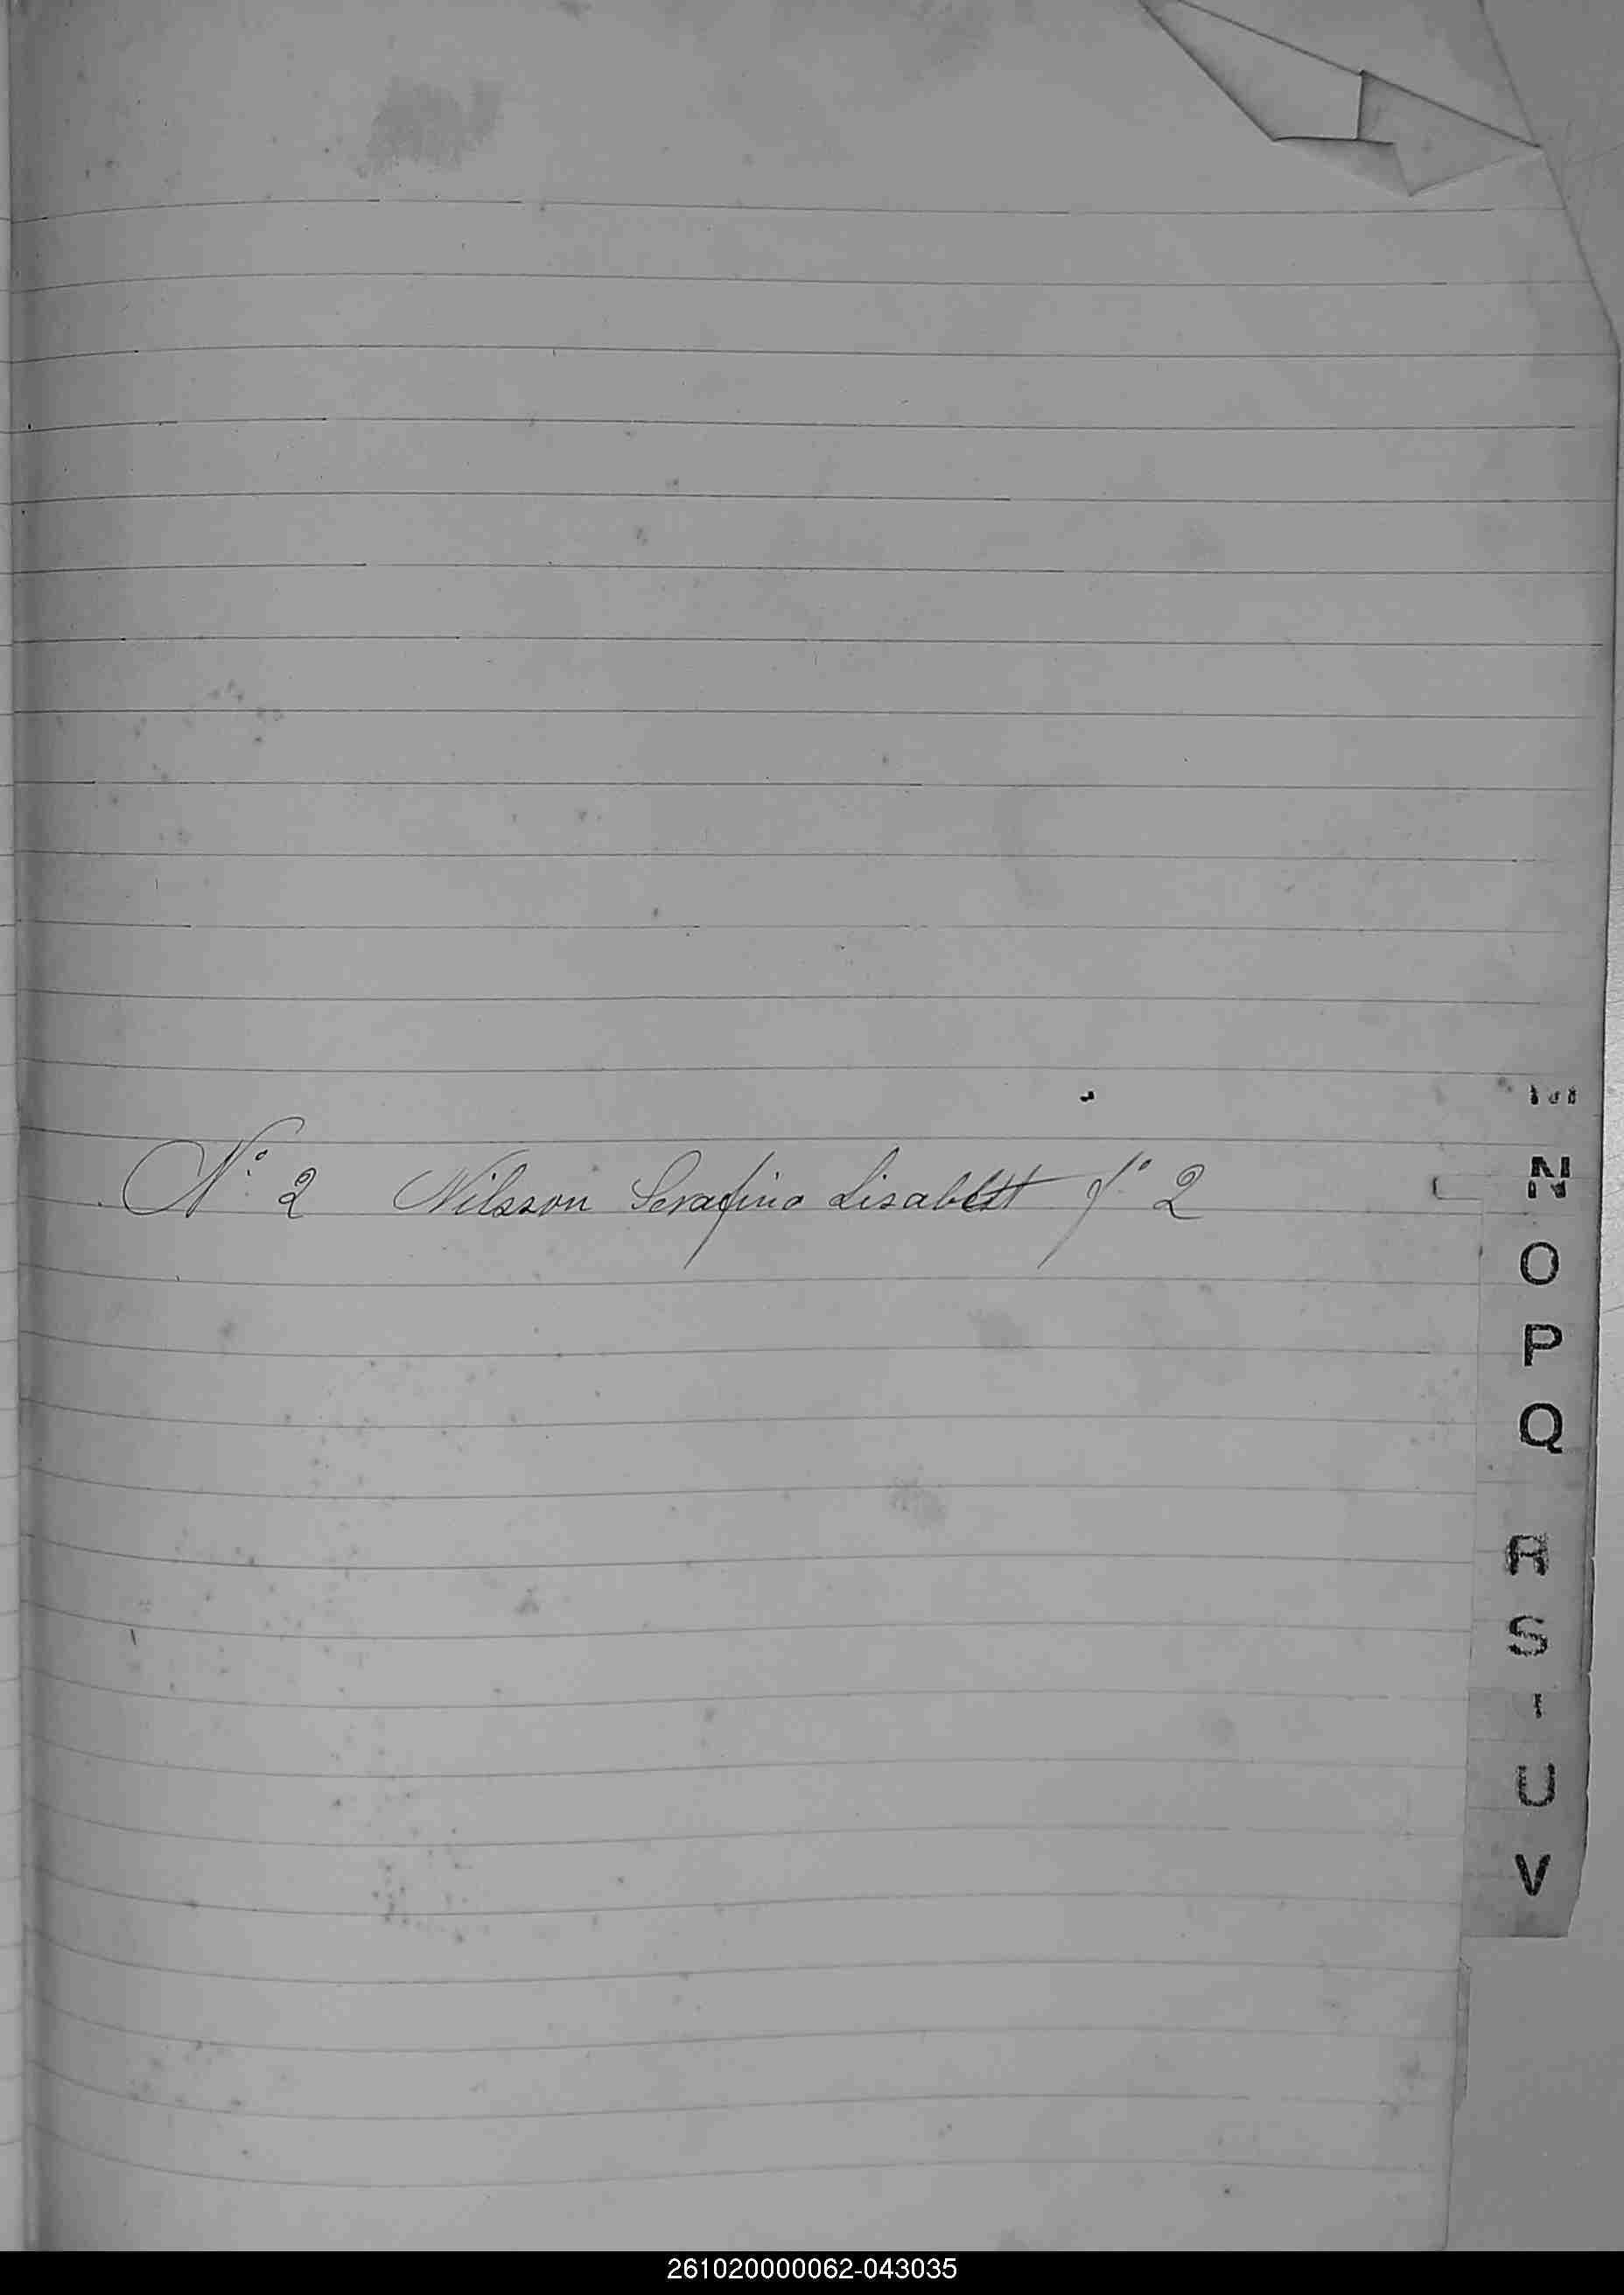 N
Nº 2 Nilsson Serafino Lisabett fº 2
O
P
Q
R
S
T
U
V
261020000062-043035